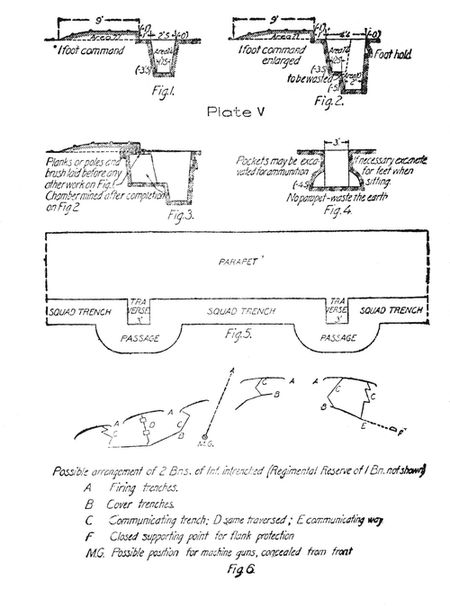 9'
(-1)
2'.5
(-0)
Area 2.7
1 foot command
(-3.5)
Fig.1.
9'
(-1)
(-0)
Area 2.7
1 foot command
enlarged
(-3.5)
to be wasted
(-5)
2'
Foot hold.
Fig. 2.
Plate V
Planks or poles and
brush laid before any
other work on Fig. 1
Chamber mined after completion
on Fig 2
Fig. 3.
3'
Pockets may be exca-
vated for ammunition
If necessary excavate
for feet when
sitting.
No parapet-waste the earth
Fig. 4.
PARAPET
SQUAD TRENCH
TRA
VERSE
3'
SQUAD TRENCH
TRA
VERSE
3'
SQUAD TRENCH
PASSAGE
Fig. 5.
PASSAGE
A
A
C
A
D
A
C
B
M.G.
C
A
B
A
C
C
B
E
F
Possible arrangement of 2 Bns. of Inf. intrenched (Regimental Reserve of 1 Bn. not shown)
A Firing trenches.
B Cover trenches.
C Communicating trench; D same traversed; E communicating way
F Closed supporting point for flank protection
M.G. Possible position for machine guns, concealed from front
Fig. 6.